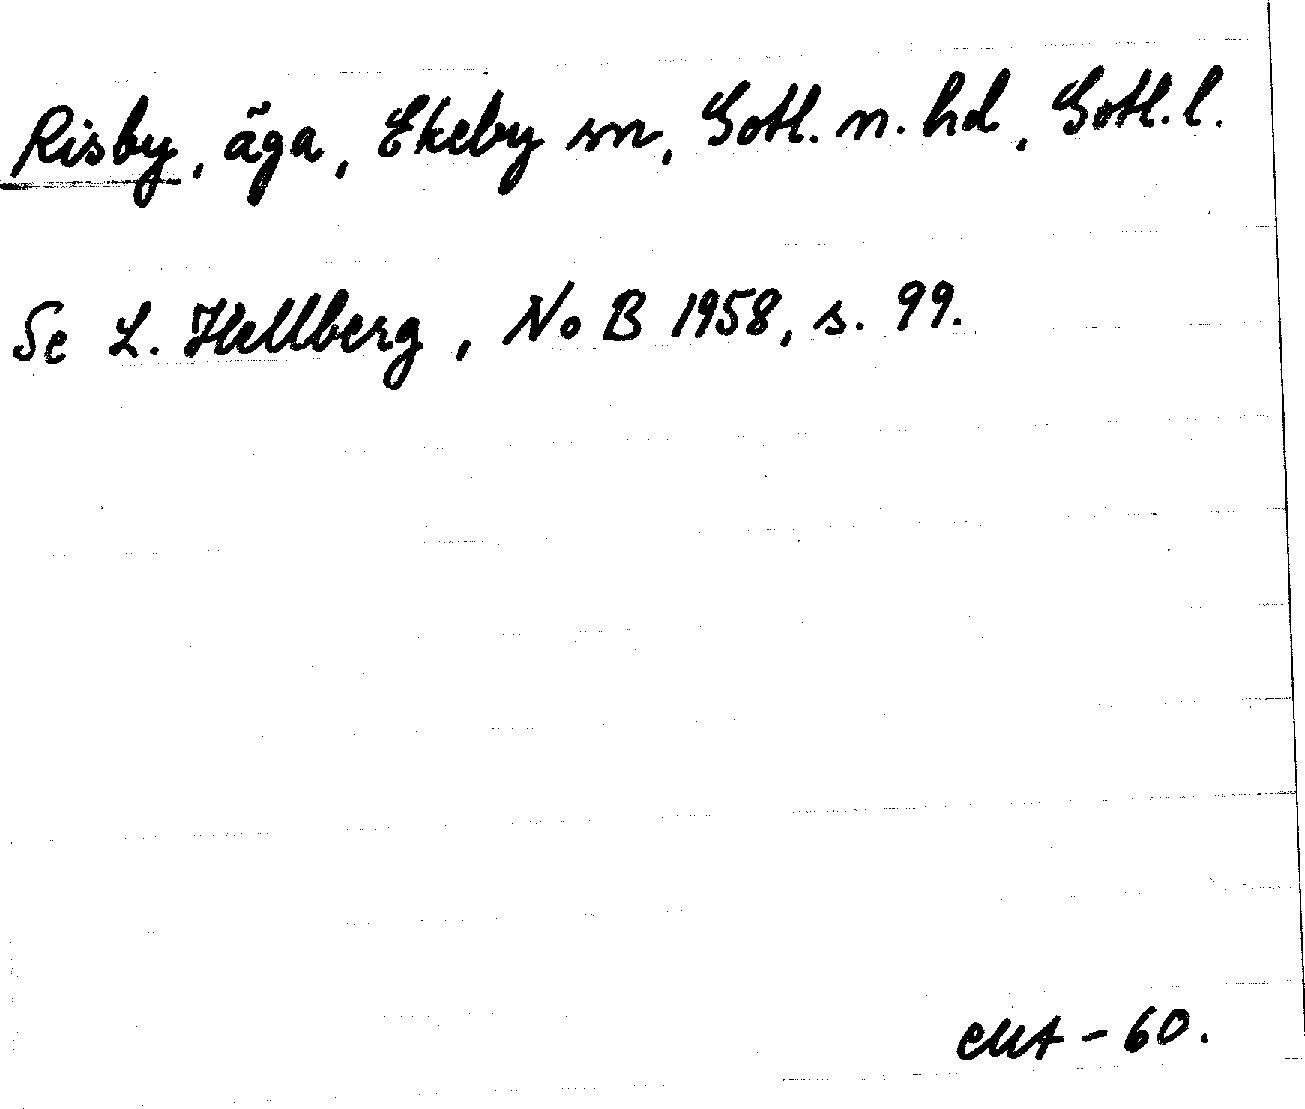 Risby, äga, Ekeby sn, Gotl. n. hd, Gotl. l.
Se L. Hellberg, NoB 1958, s. 99.
- 60.